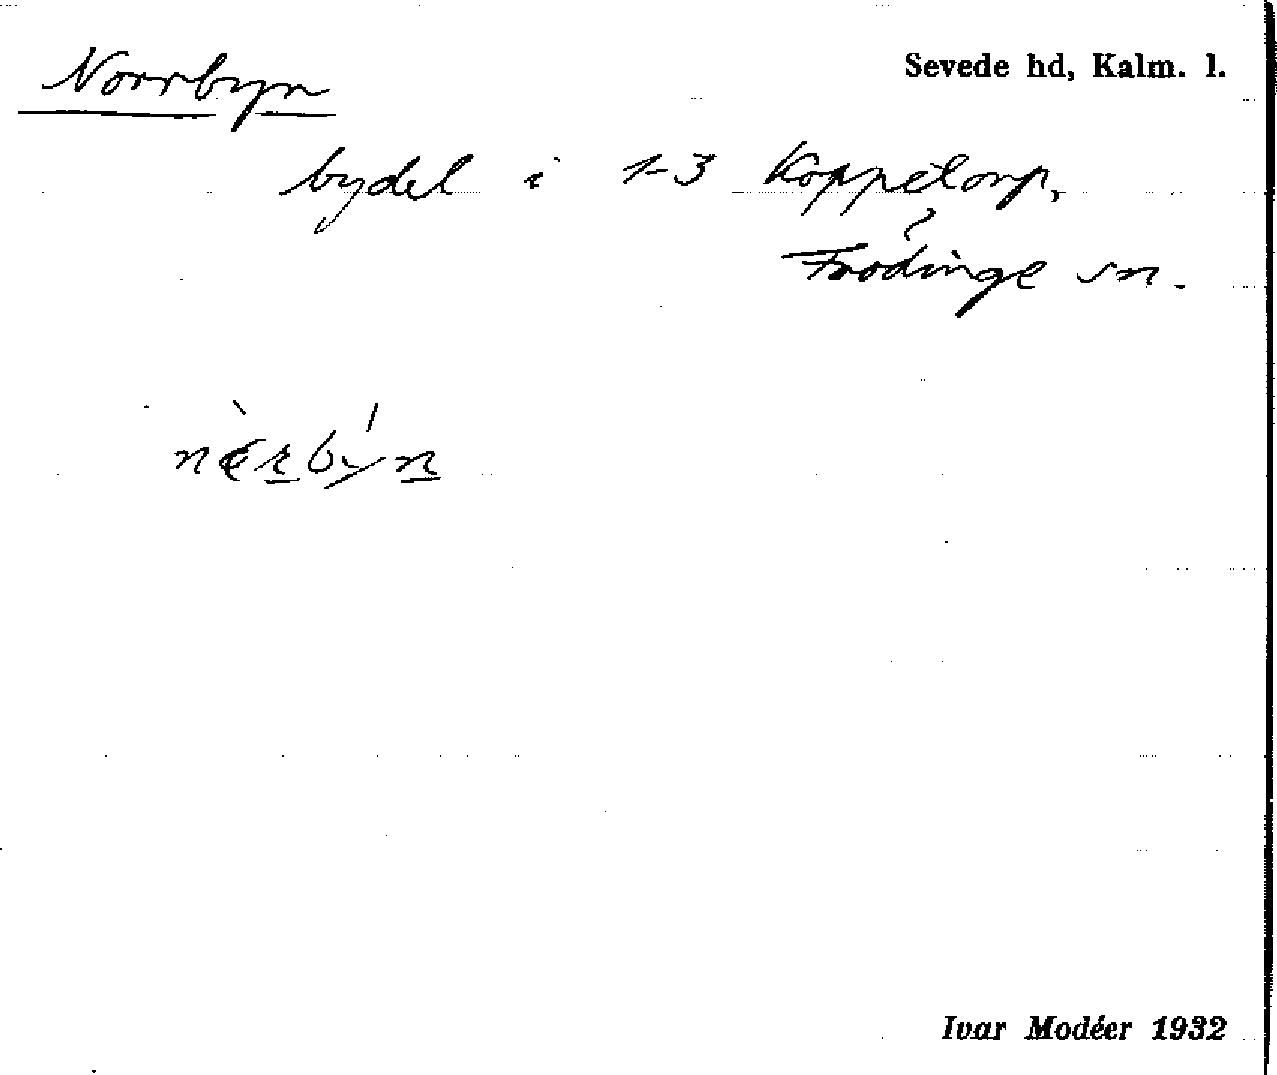 Norrbyn
Sevede hd, Kalm. l.
bydel i 1-3 Koppetorp,
Frödinge sn.
Ivar Modéer 1932